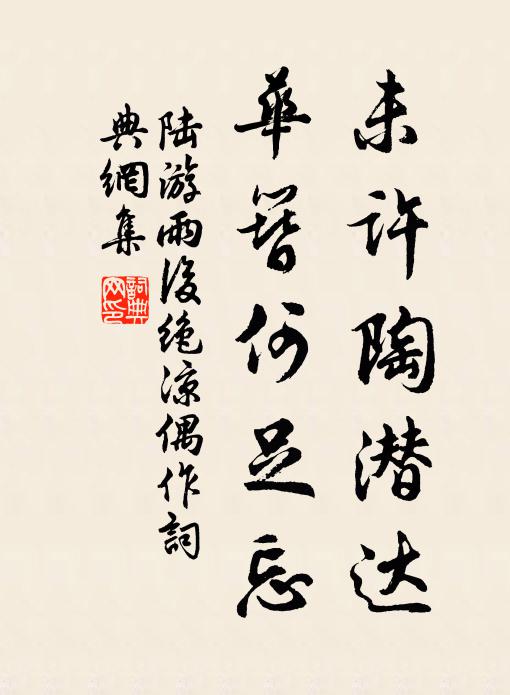 未许陶潜达
華簪何足忘
陆游雨後绝凉偶作詞
典網集
詞典
网印